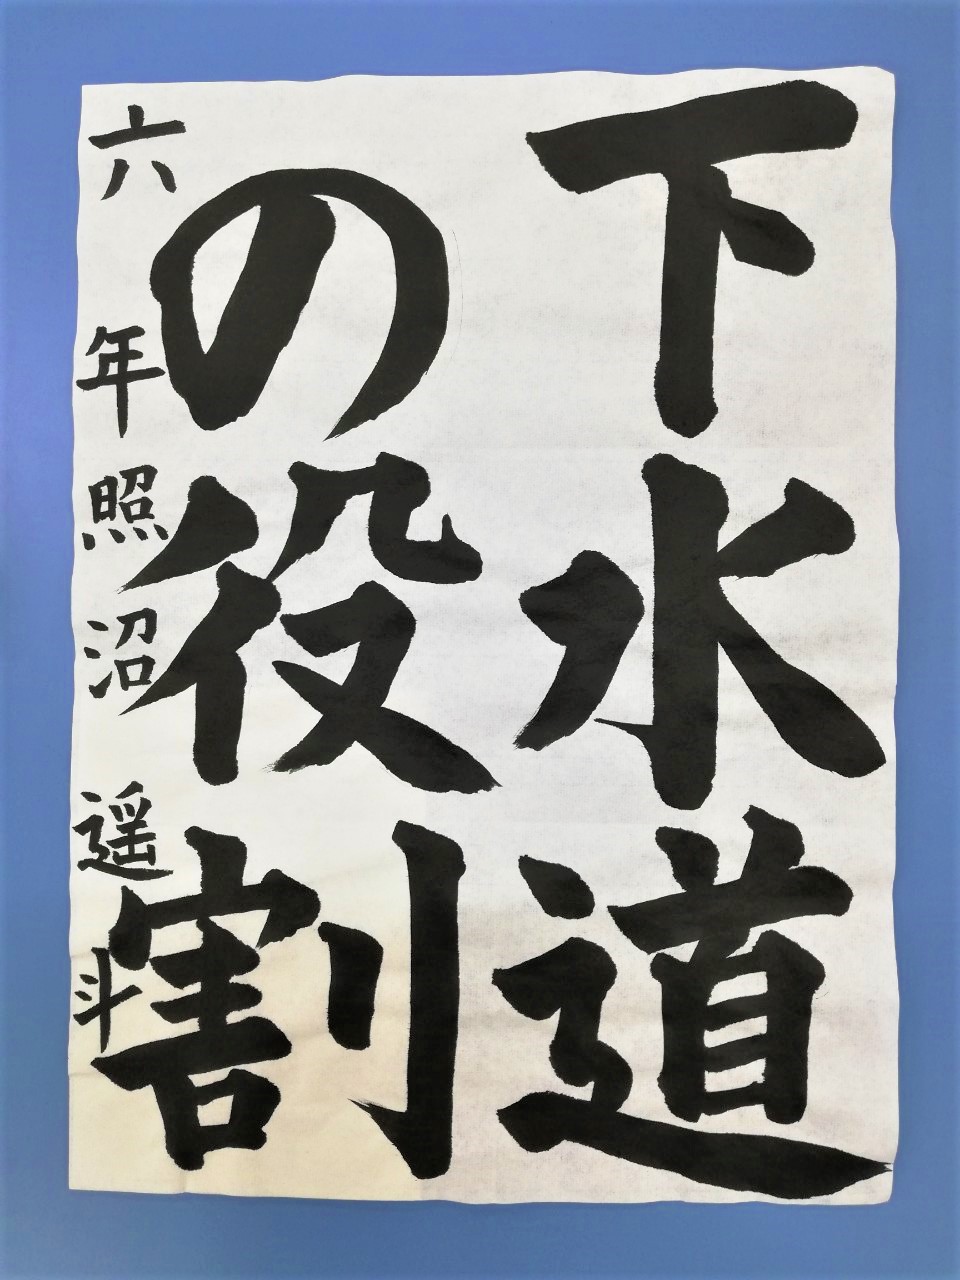 下水道
の役割
六年照沼遥斗